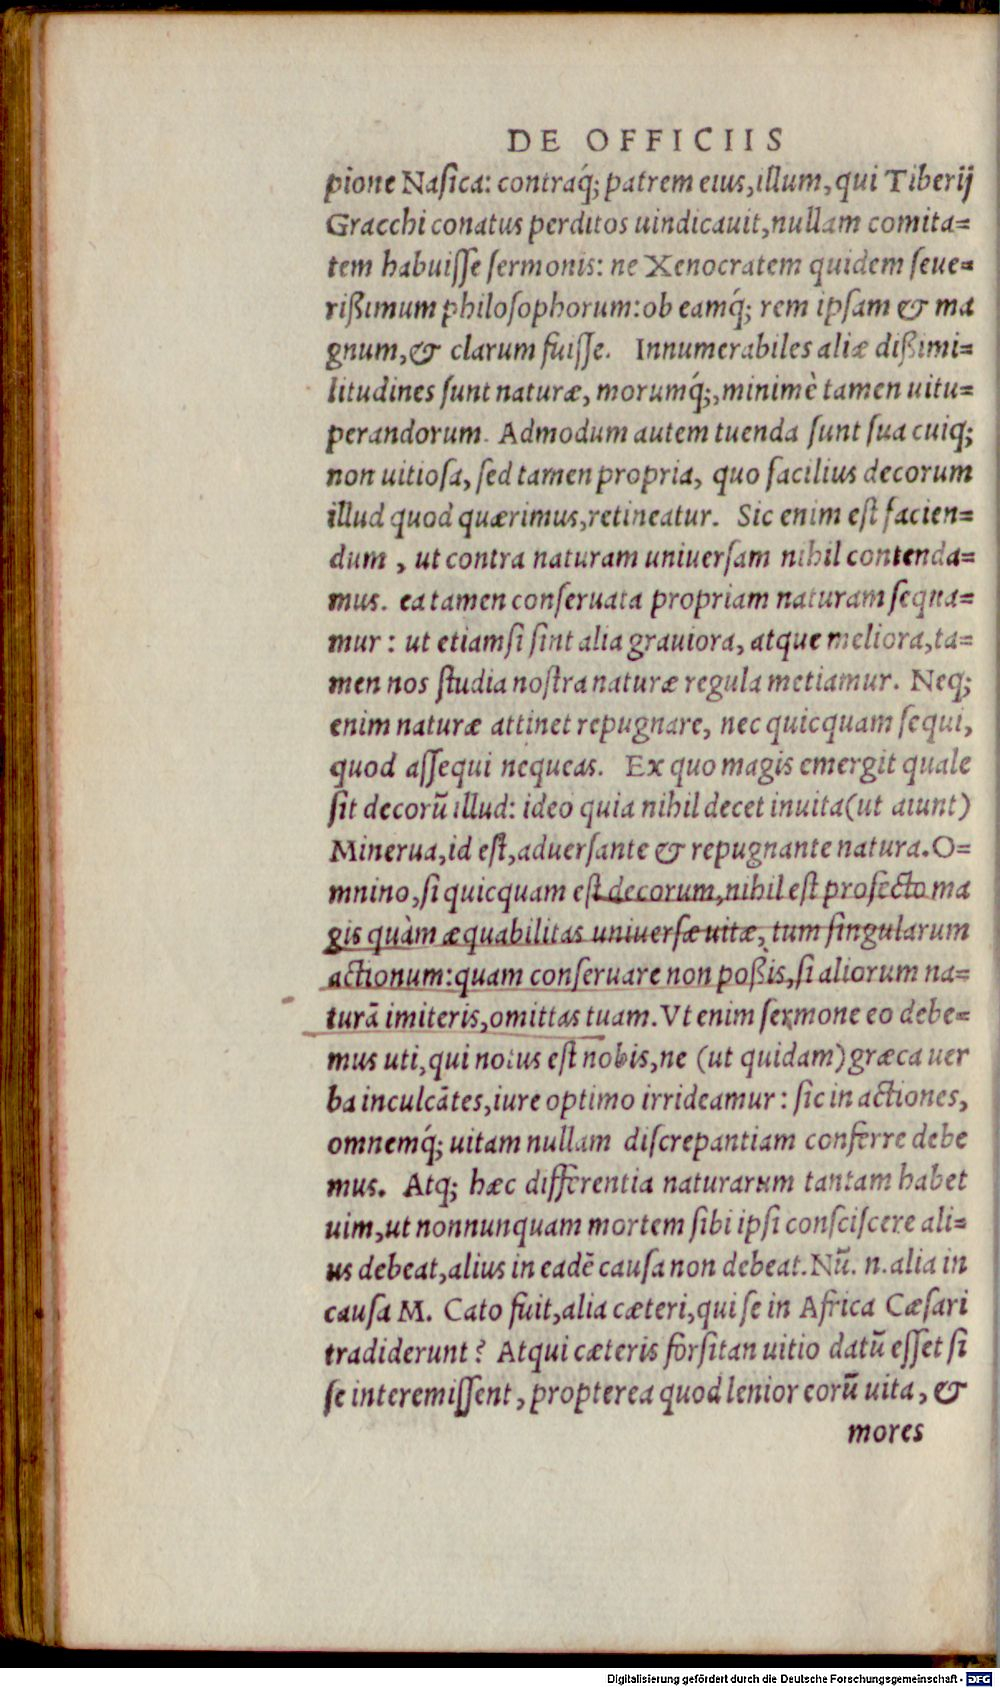 DE OFFICIIS
pione Nasica: contraq́; patrem eius, illum, qui Tiberij
Gracchi conatus perditos uindicauit, nullam comita=
tem habuisse sermonis: ne Xenocratem quidem seue=
rißimum philosophorum: ob eamq́; rem ipsam & ma
gnum, & clarum fuisse. Innumerabiles aliæ dißimi=
litudines sunt naturæ, morumq́;, minimè tamen uitu=
perandorum. Admodum autem tuenda sunt sua cuiq;
non uitiosa, sed tamen propria, quo facilius decorum
illud quod quærimus, retineatur. Sic enim est facien=
dum, ut contra naturam uniuersam nihil contenda=
mus. ea tamen conseruata propriam naturam sequa=
mur: ut etiamsi sint alia grauiora, atque meliora, ta=
men nos studia nostra naturæ regula metiamur. Neq;
enim naturæ attinet repugnare, nec quicquam sequi,
quod assequi nequeas. Ex quo magis emergit quale
sit decorū illud: ideo quia nihil decet inuita (ut aiunt)
Minerua, id est, aduersante & repugnante natura. O=
mnino, si quicquam est decorum, nihil est profecto ma
gis quàm æquabilitas uniuersæ uitæ, tum singularum
actionum: quam conseruare non poßis, si aliorum na=
turā imiteris, omittas tuam. Vt enim sermone eo debe=
mus uti, qui notus est nobis, ne (ut quidam) græca uer
ba inculcātes, iure optimo irrideamur: sic in actiones,
omnemq́; uitam nullam discrepantiam conferre debe
mus. Atq; hæc differentia naturarum tantam habet
uim, ut nonnunquam mortem sibi ipsi consciscere ali=
us debeat, alius in eadē causa non debeat. Nū. n. alia in
causa M. Cato fuit, alia cæteri, qui se in Africa Cæsari
tradiderunt? Atqui cæteris forsitan uitio datū esset si
se interemissent, propterea quod lenior eorū uita, &
mores
Digitalisierung gefördert durch die Deutsche Forschungsgemeinschaft - DFG